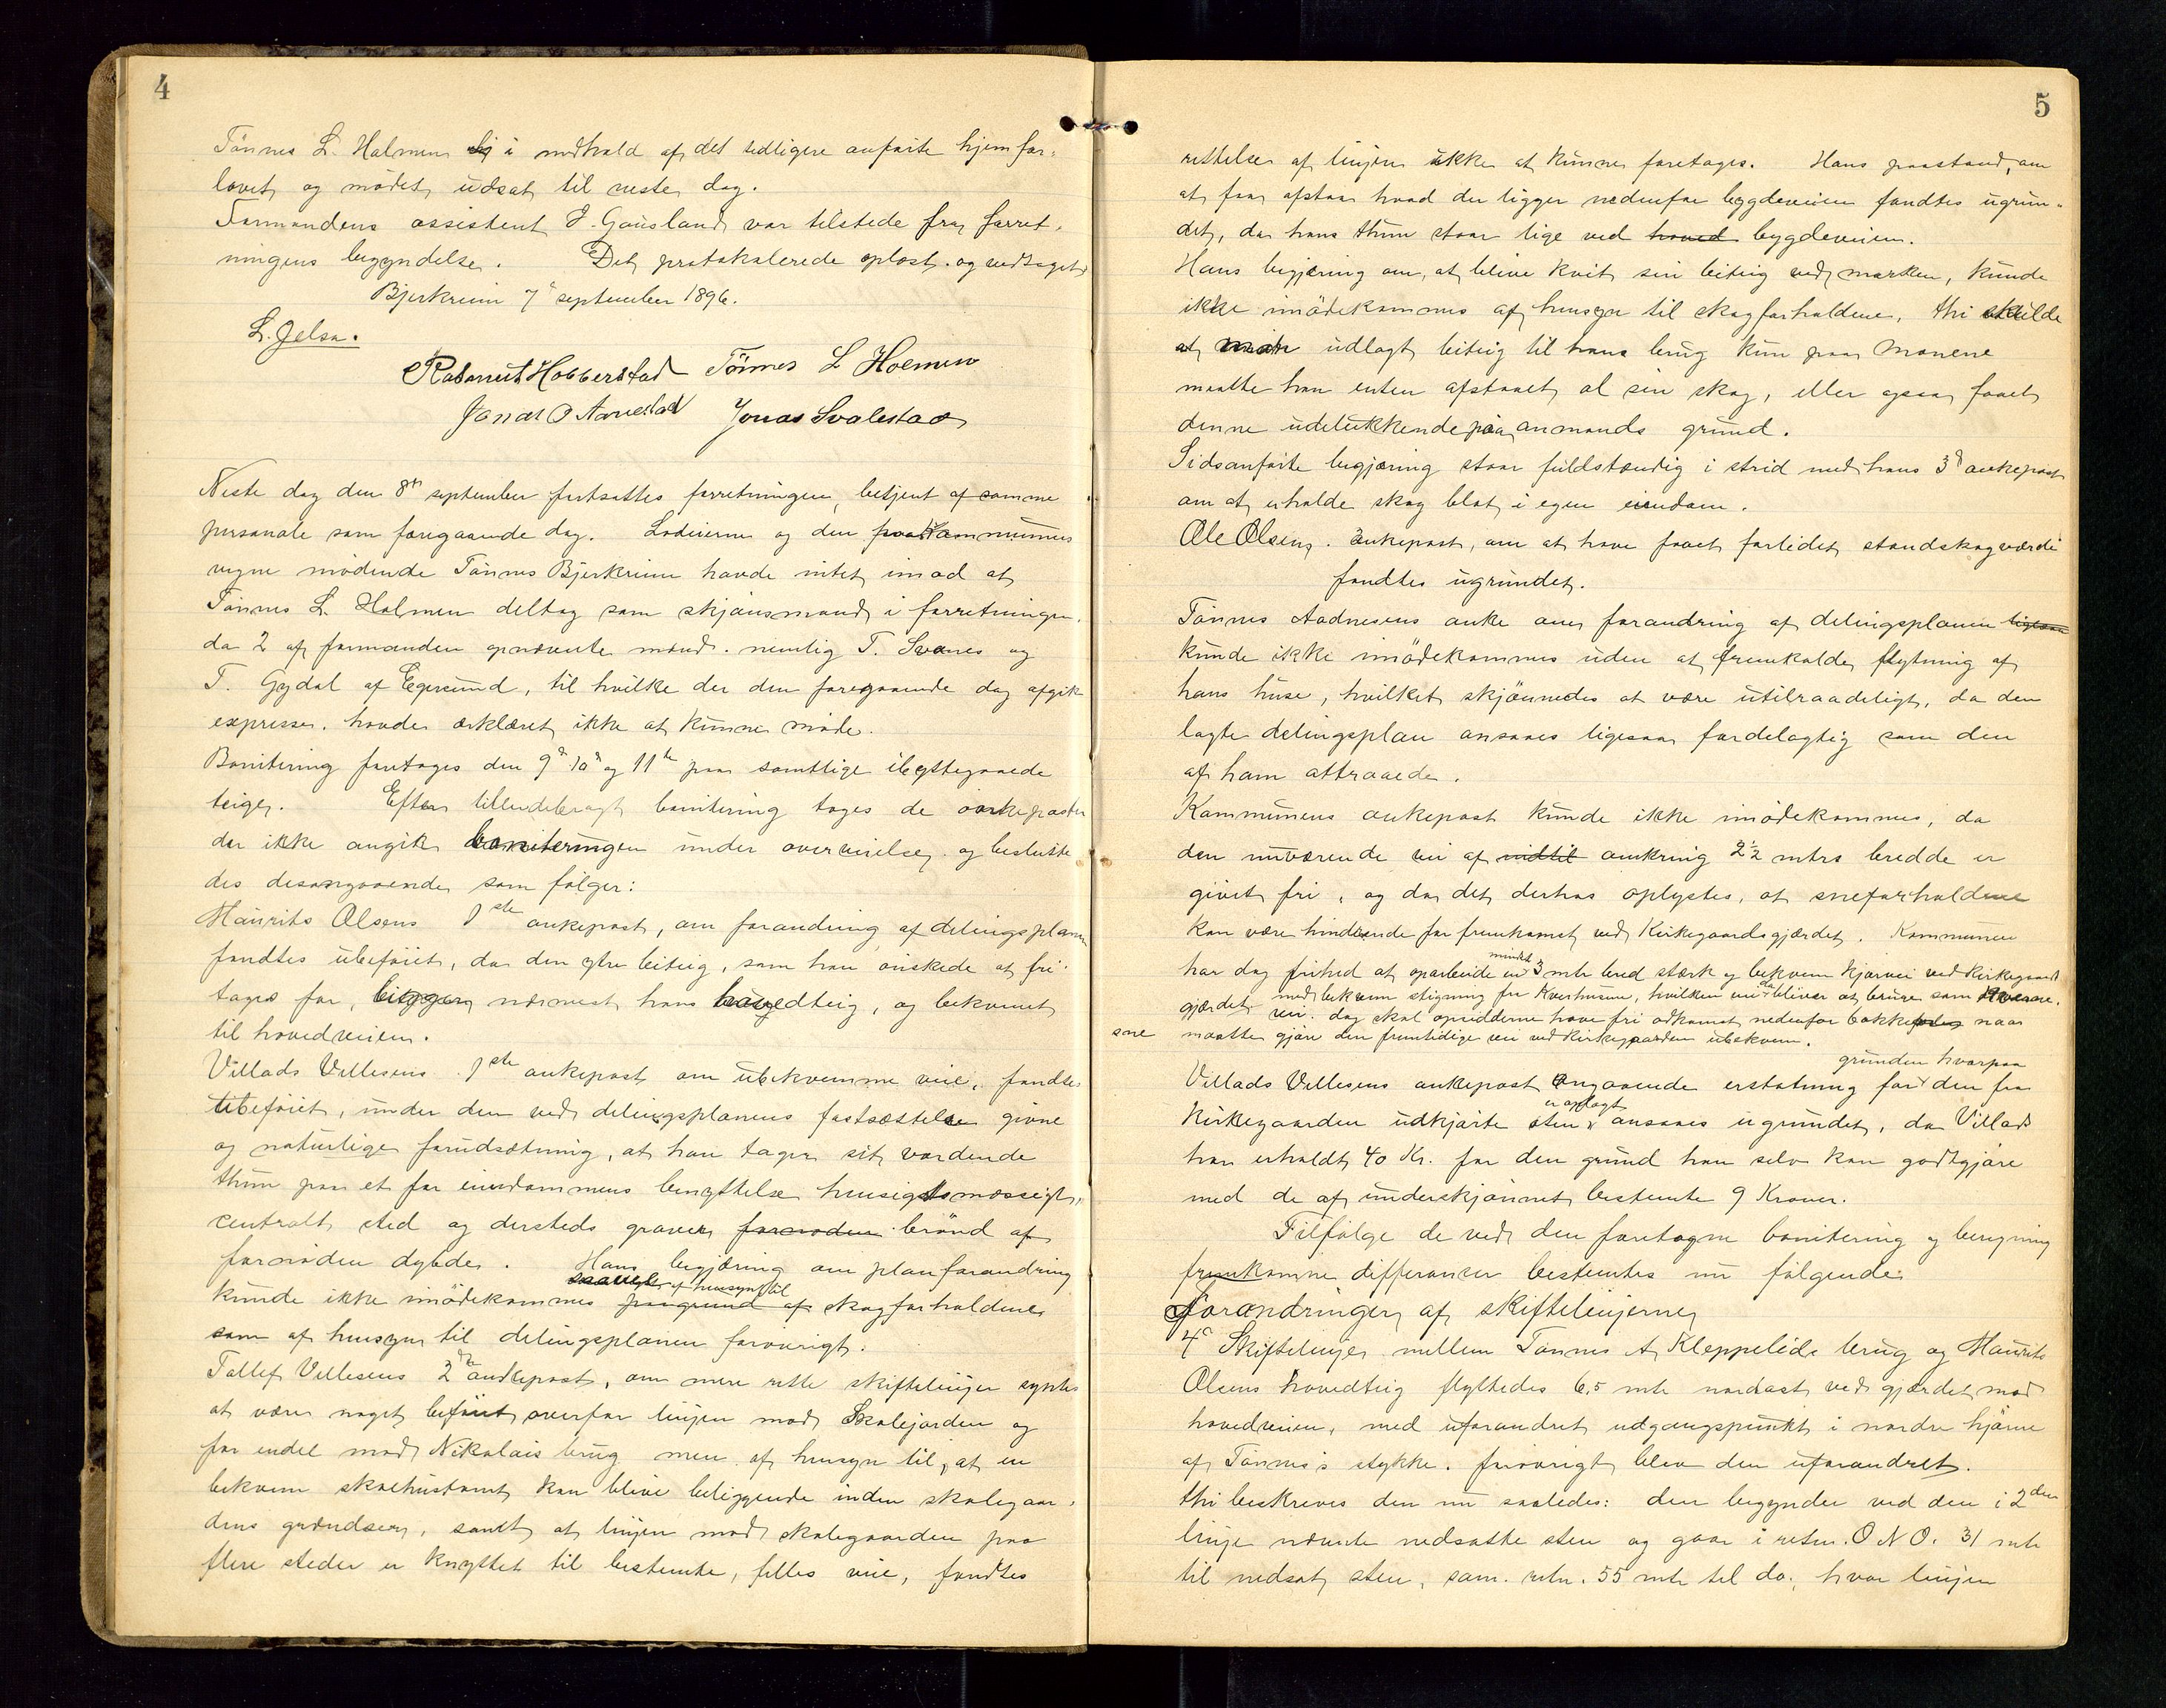 4
Tönnes L. Holmen i medhold af det tidligere anförte hjemfor-
lovet og mödet udsat til neste dag.
Formandens assistent J. Gausland var tilstede fra forret-
ningens begyndelse. Det protokolerede oplæst og vedtaget
Bjerkreim 7de september 1896.
L. Jelsa.
Rasmus Hobberstad Tönnes L Holmen
Jonas O Aarrestad Jonas Svalestad
Neste dag den 8de september fortsattes forretningen, betjent af samme
personale som foregaaende dag. Lodeierne og den paa kommunens
vegne mödende Tönnes Bjerkreim havde intet imod at
Tönnes L. Holmen deltog som skjönsmand i forretningen,
da 2 af formanden opnævnte mænd, nemlig T. Svanes og
T. Gydal af Egersund, til hvilke der den foregaaende dag afgik
expresse, havde erklæret ikke at kunne möde.
Bonitering foretoges den 9de 10de og 11te paa samtlige ibyttegaaede
teiger. Efter tilendebragt bonitering toges de ankeposter
der ikke angik boniteringen under overveielse og beslutte-
des desangaaende som fölger:
Maurits Olsens 1ste ankepost, om forandring af delingsplanen
fandtes ubeföiet, da den ytre beiteig, som han önskede at fri-
tages for, ligger nærmest hans hovedteig, og bekvemt
til hovedveien.
Villads Villesens 1ste ankepost om ubekvemme veie, fandtes
ubeföiet, under den ved delingsplanens fastsættelse givne
og naturlige forudsætning, at han tager sit vordende
thun paa et for eiendommens benyttelse hensigtsmæssigt,
centralt sted og dersteds graver fornöden brönd af
fornöden dybde. Hans begjæring om planforandring
saavel af hensyn til
kunde ikke imödekommes paa grund af skogforholdene
som af hensyn til delingsplanen forövrigt.
Tollef Villesens 2den ankepost, om mere rette skiftelinjer syntes
at være noget beföiet overfor linjen mod Skolejorden og
for endel mod Nikolais brug men af hensyn til, at en
bekvem skolehustomt kan blive beliggende inden skolegaar-
dens grændser, samt at linjen mod skolegaarden paa
flere steder er knyttet til bestemte, fælles veie, fandtes
5
rettelse af linjen ikke at kunne foretages. Hans paastand, om
at faa afstaa hvad der ligger nedenfor bygdeveien fandtes ugrun-
det, da hans thun staar lige ved hoved bygdeveien.
Hans begjæring om, at blive kvit sin beiteig ved marken, kunde
ikke imödekommes af hensyn til skogforholdene, thi skulde
at udlagt beiteig til hans brug kun paa Monene
maatte han enten afstaaet al sin skog, eller ogsaa faaet
denne udelukkende paa anmands grund.
Sidsanförte begjæring staar fuldstændig i strid med hans 3de ankepost
om at erholde skog blot i egen eiendom.
Ole Olsens ankepost, om at have faaet forlidet standskogværdi
fandtes ugrundet.
Tönnes Aadnesens anke om forandring af delingsplanen ligesaa
kunde ikke imödekommes uden at fremkalde flytning af
hans huse, hvilket skjönnedes at være utilraadeligt, da den
lagte delingsplan ansaaes ligesaa fordelagtig som den
af ham attraaede.
Kommunens ankepost kunde ikke imödekommes, da
den nuværende vei af indtil omkring 2½ mtrs bredde er
givet fri, og da det derhos oplystes, at sneforholdene
kan være hindrende for fremkomst ved Kirkegaardsgjærdet. Kommunen
mindst
har dog frihed at oparbeide en 3 mtr bred stærk og bekvem kjörevei ved Kirkegaards
gjærdet med bekvem stigning fra Kverhusene, hvilken vei da bliver at bruge som
vei. dog skal opsidderne have fri adkomst nedenfor bakke naar
sne maatte gjöre den fremtidige vei ved Kirkegaarden ubekvem.
grunden hvorpaa
Villads Villesens ankepost angaaende erstatning for den fra
er oplagt
Kirkegaarden udkjörte sten ansaaes ugrundet, da Villads
har erholdt 40 Kr. for den grund han selv kan godtgjöre
med de af underskjönnet bestemte 9 Kroner.
Tilfölge de ved den foretagne bonitering og beregning
fremkomne differencer bestemtes nu fölgende
Forandringer af skiftelinjerne
4de Skiftelinje mellem Tönnes A. Kleppelids brug og Maurits
Olsens hovedteig flyttedes 6,5 mtr nordost ved gjærdet mod
hovedveien, med uforandret udgangspunkt i nordre hjörne
af Tönnes's stykke. forövrigt blev den uforandret.
thi beskreves den nu saaledes: den begynder ved den i 2den
linje nævnte nedsatte sten og gaar i retn. O N O. 31 mtr
til nedsat sten, sam. retn. 55 mtr til do., hvor linjen